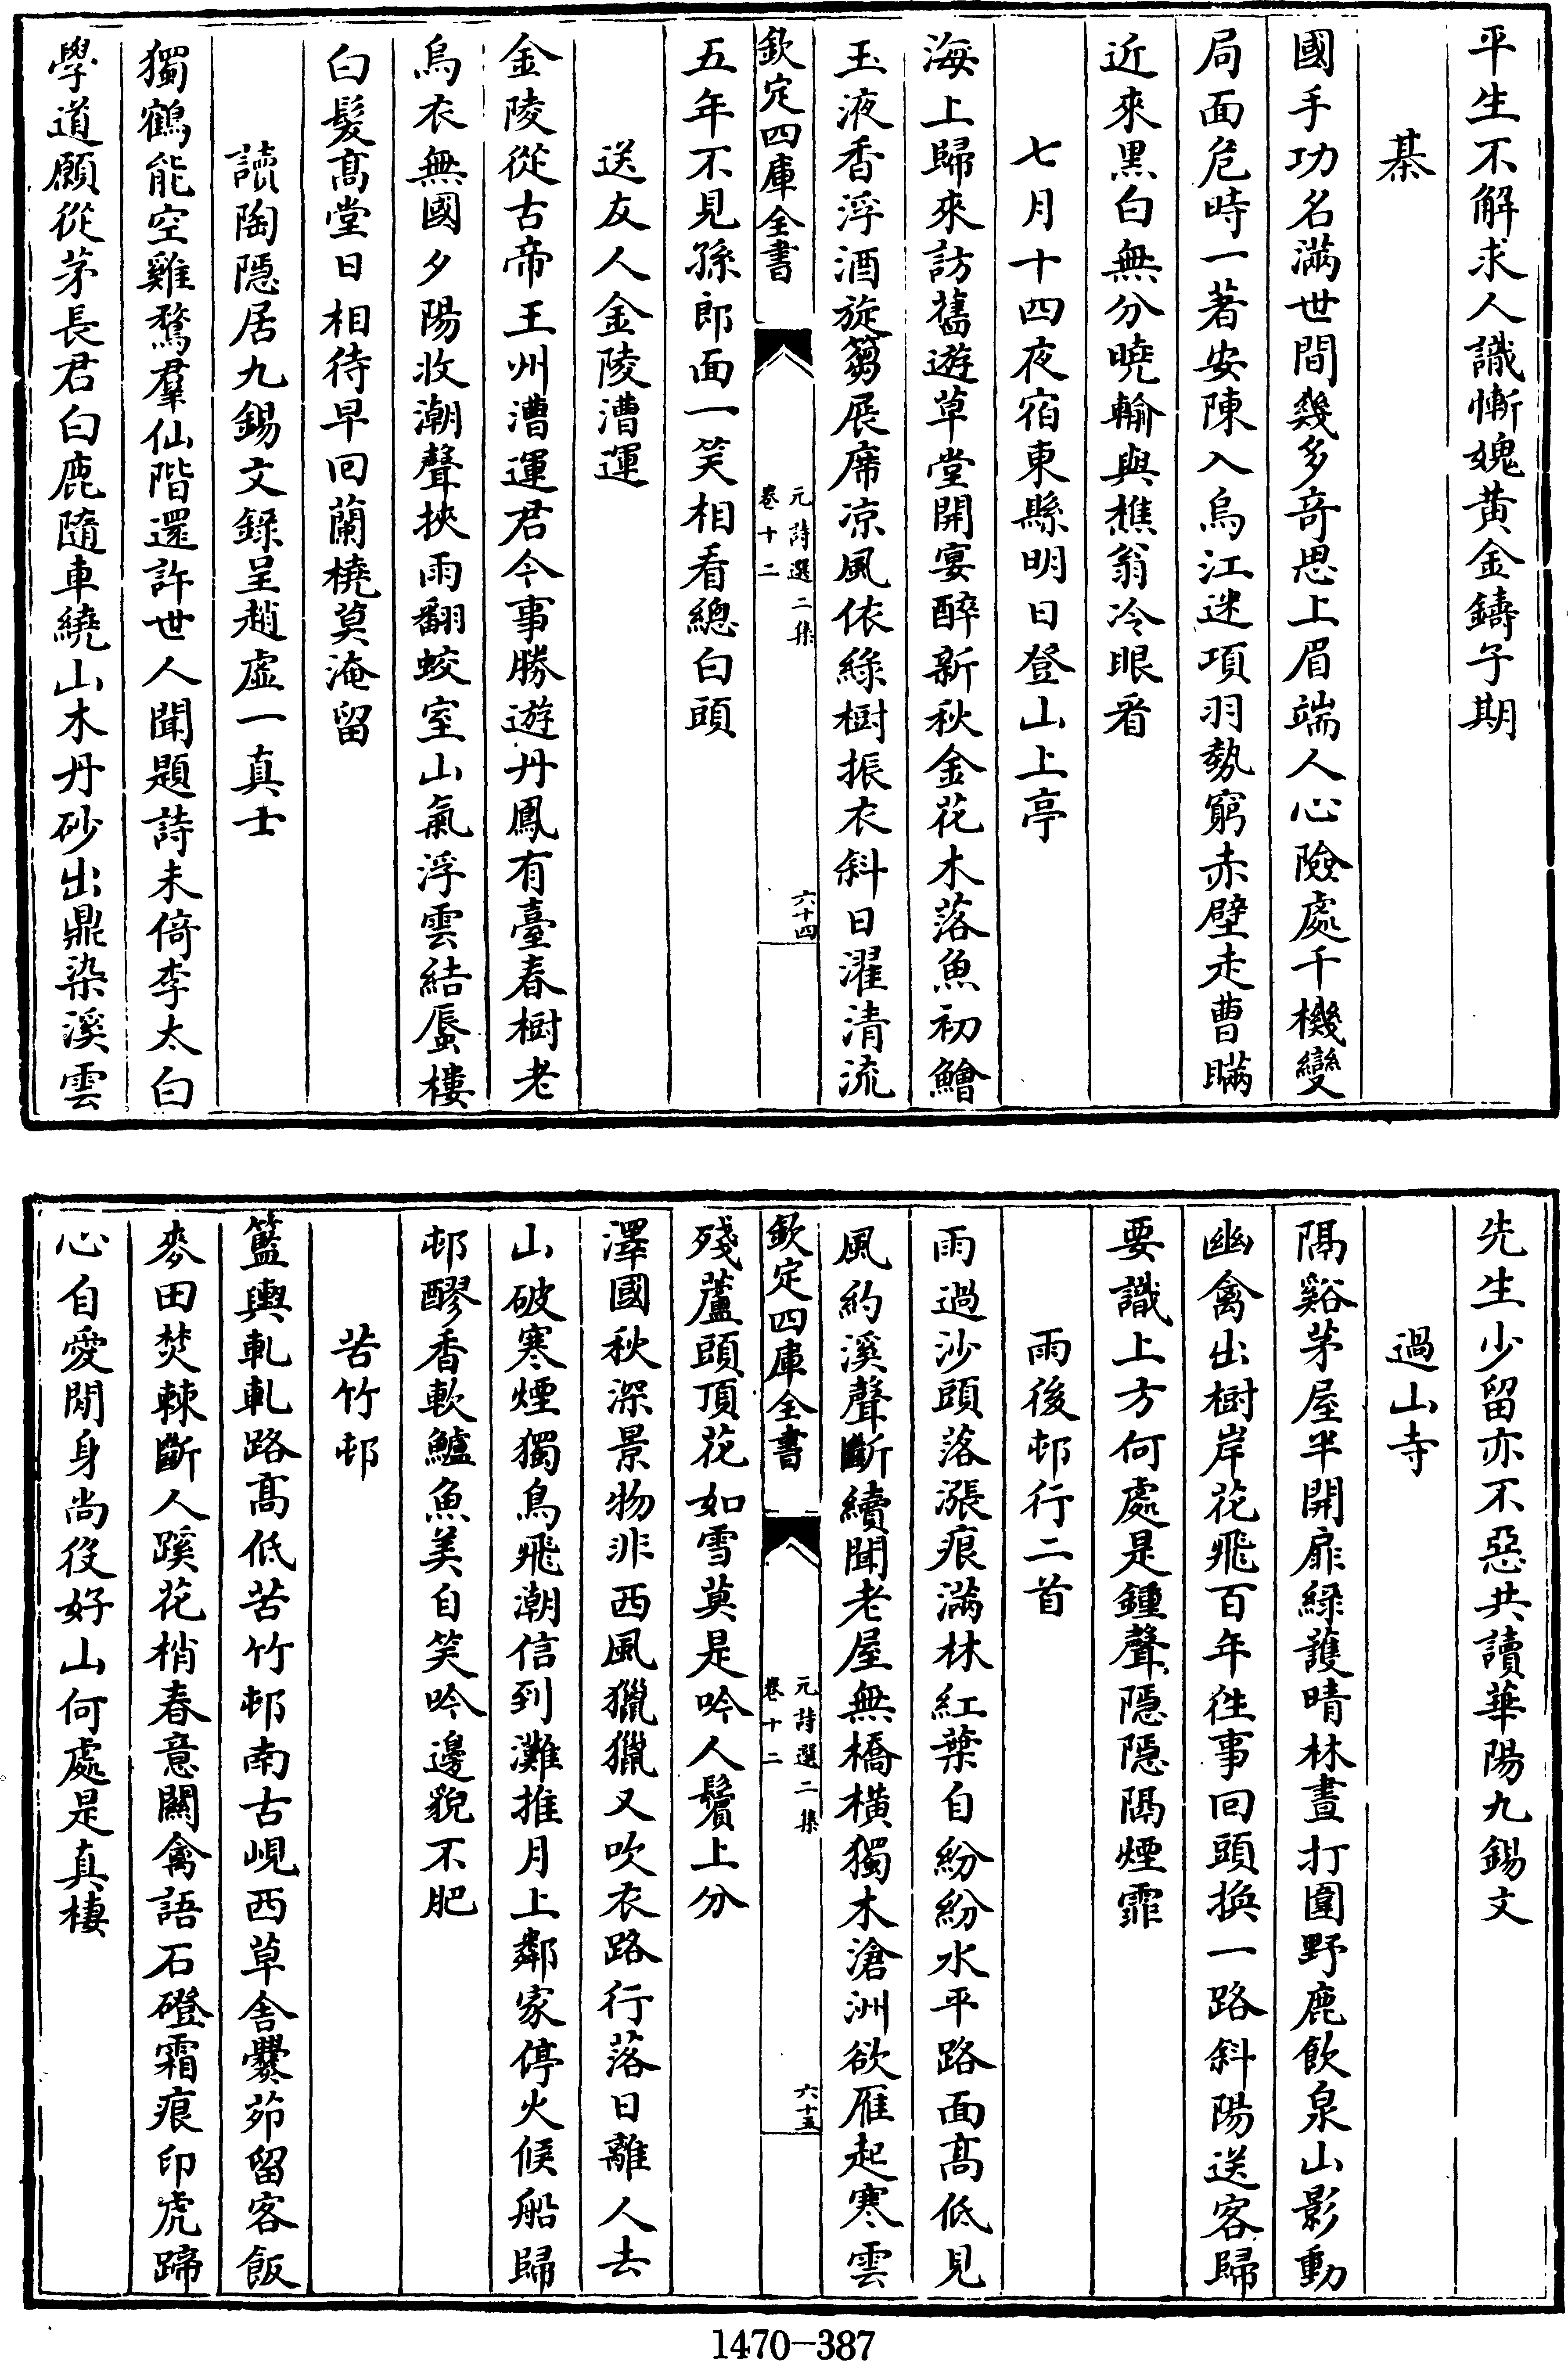 平生不解求人識慚媿黃金鑄子期
棊
國手功名滿世間幾多奇思上眉端人心險處千機變
局面危時一著安陳入烏江迷項羽勢窮赤壁走曹瞞
近來黑白無分曉輸與樵翁冷眼看
七月十四夜宿東縣明日登山上亭
海上歸來訪舊遊草堂開宴醉新秋金花木落魚初鱠
玉液香浮酒旋篘展席凉風依綠樹振衣斜日濯清流
欽定四庫全書
元詩選二集
卷十二
六十四
五年不見孫郎面一笑相看總白頭
送友人金陵漕運
金陵從古帝王州漕運君今事勝遊丹鳳有臺春樹老
烏衣無國夕陽收潮聲挾雨翻蛟室山氣浮雲結蜃樓
白髮髙堂日相待早回蘭橈莫淹留
讀陶隱居九錫文錄呈趙虛一真士
獨鶴能空雞鶩羣仙階還許世人聞題詩未倚李太白
學道願從茅長君白鹿隨車繞山木丹砂出鼎染溪雲
先生少留亦不惡共讀華陽九錫文
過山寺
隔谿茅屋半開扉綠護晴林晝打圍野鹿飲泉山影動
幽禽出樹岸花飛百年徃事回頭換一路斜陽送客歸
要識上方何處是鍾聲隱隱隔煙霏
雨後邨行二首
雨過沙頭落漲痕滿林紅葉自紛紛水平路面髙低見
風約溪聲斷續聞老屋無橋橫獨木滄洲欲雁起寒雲
欽定四庫全書
元詩選二集
卷十二
六十五
殘蘆頭頂花如雪莫是吟人鬢上分
澤國秋深景物非西風獵獵又吹衣路行落日離人去
山破寒煙獨鳥飛潮信到灘推月上鄰家停火候船歸
邨醪香軟鱸魚美自笑吟邊貌不肥
苦竹邨
籃輿軋軋路髙低苦竹邨南古峴西草舍爨茆留客飯
麥田焚棘斷人蹊花梢春意關禽語石磴霜痕印虎蹄
心自愛閒身尚役好山何處是真棲
1470-387